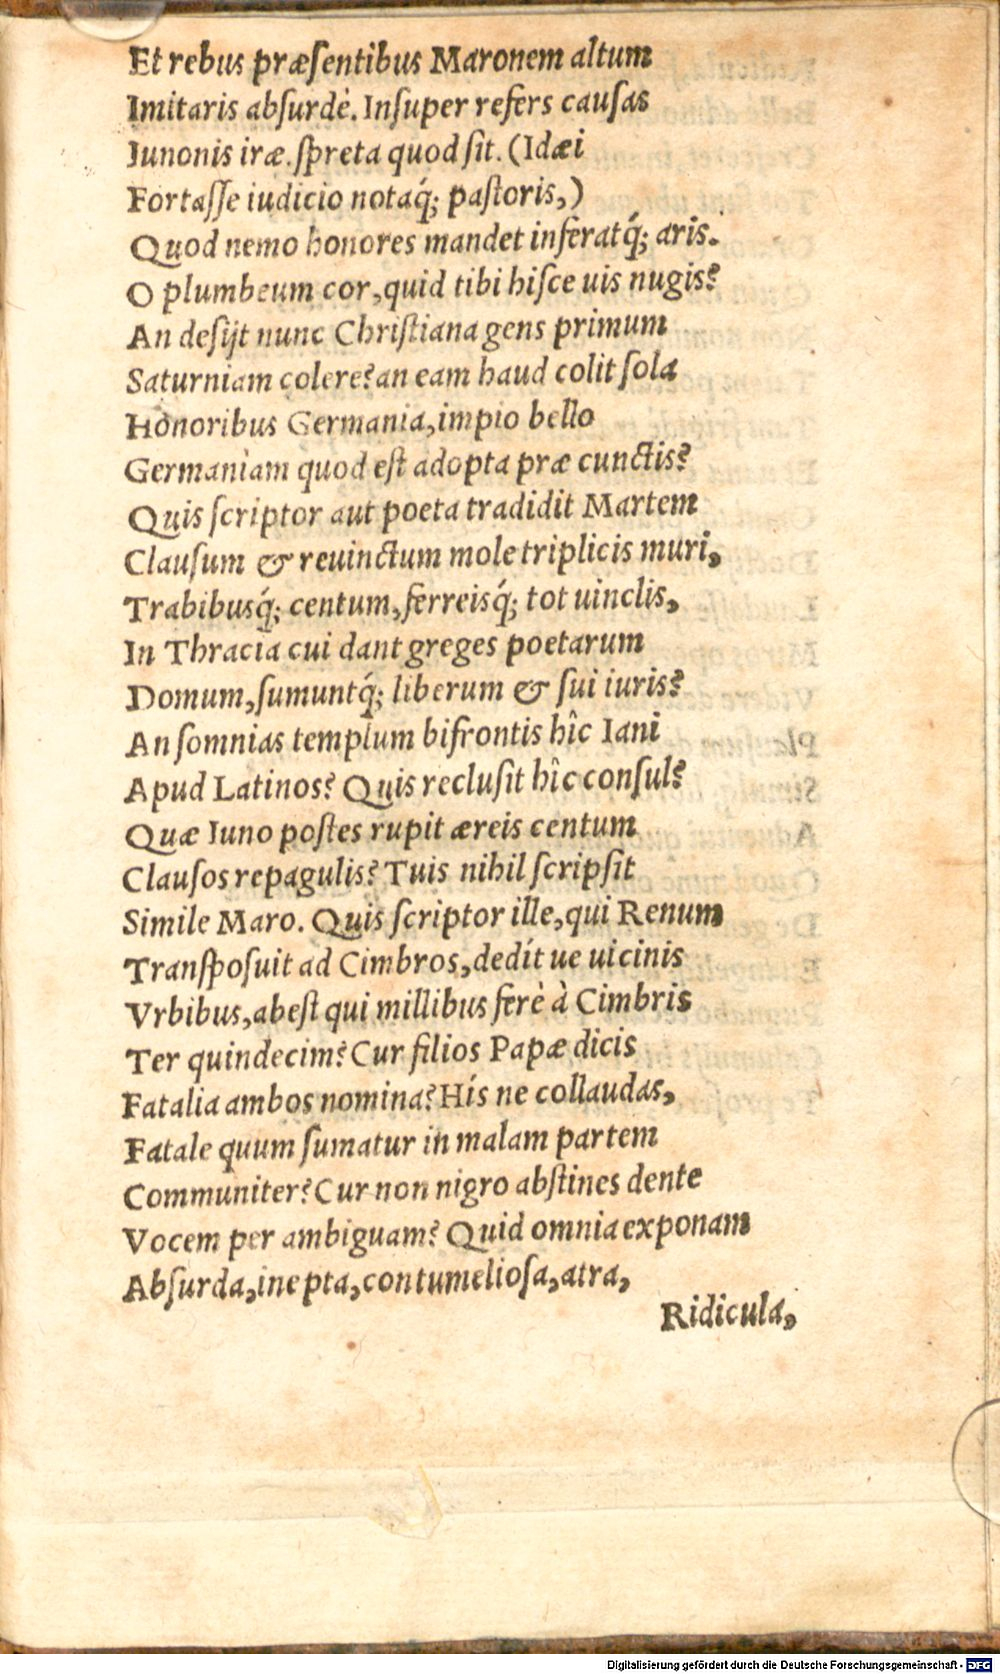 Et rebus præſentibus Maronem altum
Imitaris abſurdè. Inſuper refers cauſas
Iunonis iræ. ſpreta quod ſit. (Idæi
Fortaſſe iudicio notaq́; paſtoris,)
Quod nemo honores mandet inferatq́; aris.
O plumbeum cor, quid tibi hiſce uis nugis?
An deſijt nunc Chriſtiana gens primum
Saturniam colere? an eam haud colit ſola
Honoribus Germania, impio bello
Germaniam quod eſt adopta præ cunctis?
Quis ſcriptor aut poeta tradidit Martem
Clauſum & reuinctum mole triplicis muri,
Trabibusq́; centum, ferreisq́; tot uinclis,
In Thracia cui dant greges poetarum
Domum, ſumuntq́; liberum & ſui iuris?
An ſomnias templum bifrontis hîc Iani
Apud Latinos? Quis recluſit hîc conſul?
Quæ Iuno poſtes rupit æreis centum
Clauſos repagulis? Tuis nihil ſcripſit
Simile Maro. Quis ſcriptor ille, qui Renum
Tranſpoſuit ad Cimbros, dedit ue uicinis
Vrbibus, abeſt qui millibus ferè à Cimbris
Ter quindecim? Cur filios Papæ dicis
Fatalia ambos nomina? His ne collaudas,
Fatale quum ſumatur in malam partem
Communiter? Cur non nigro abſtines dente
Vocem per ambiguam? Quid omnia exponam
Abſurda, inepta, contumelioſa, atra,
Ridicula,
Digitalisierung gefördert durch die Deutsche Forschungsgemeinschaft - DFG